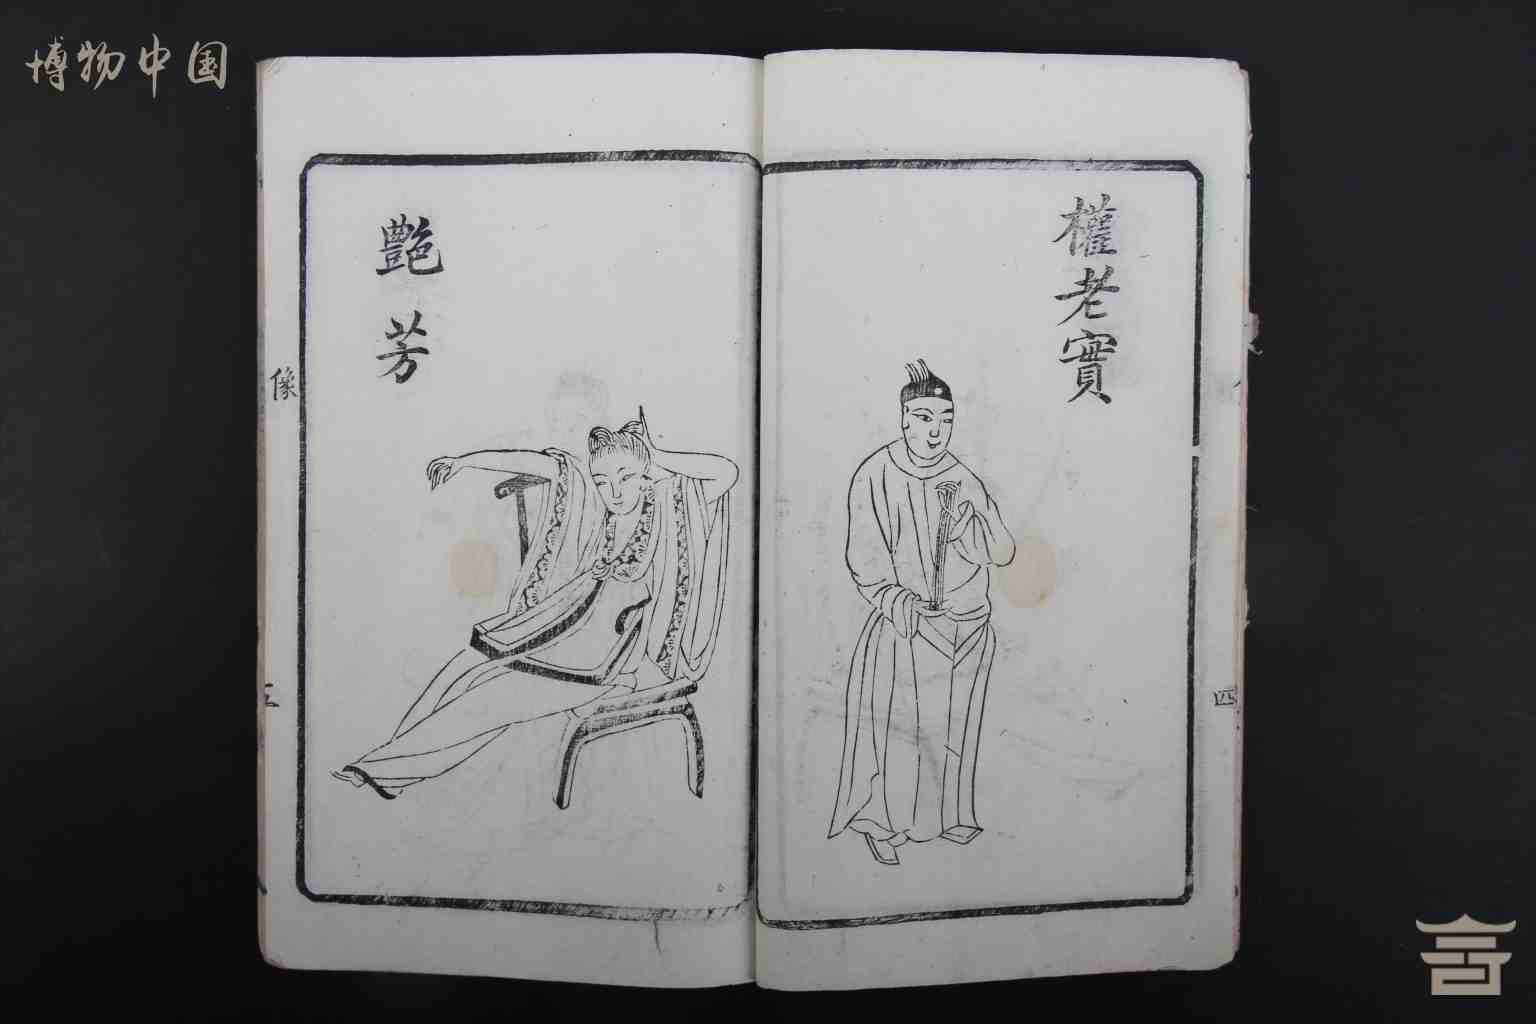 博物中国
權老實
四
艷芳
像